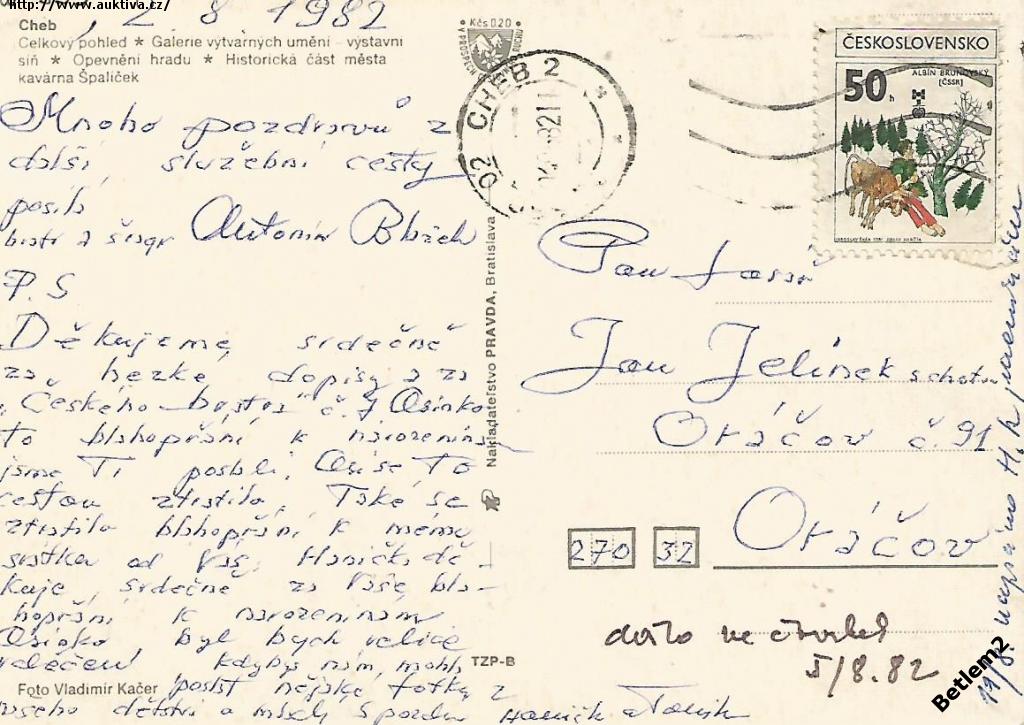 http://www.auktiva.cz/
2 8 1982
Cheb
Celkový pohled * Galerie výtvarných umění – výstavní
síň * Opevnění hradu * Historická část města
kavárna Špalíček
Mnoho pozdravů z
další služební cesty
posílá
Antonín
P.S
Děkujeme srdečně
za hezké dopisy a za
Českého
to blahopřání k narozeninám
jsme Ti poslali, asi se to
cestou ztratilo. Také se
ztratilo blahopřání k mému
svátku od Vás. Hanička dě-
kuje srdečně za Vaše bla-
hopřání k narozeninám
byl bych velice
vděčen kdybys nám mohl
poslat nějaké fotky z
našeho dětství a mládí S pozdr
Foto Vladimír Kačer
TZP-B
Nakladateľstvo PRAVDA, Bratislava
Kčs 0.20
02 CHEB 2
ČESKOSLOVENSKO
50 h
ALBÍN BRUNOVSKÝ
(ČSSR)
Pan
Jan Jelínek
Oráčov č. 91
270 32
Oráčov
došlo ve čtvrtek
5/8.82
Betlem2